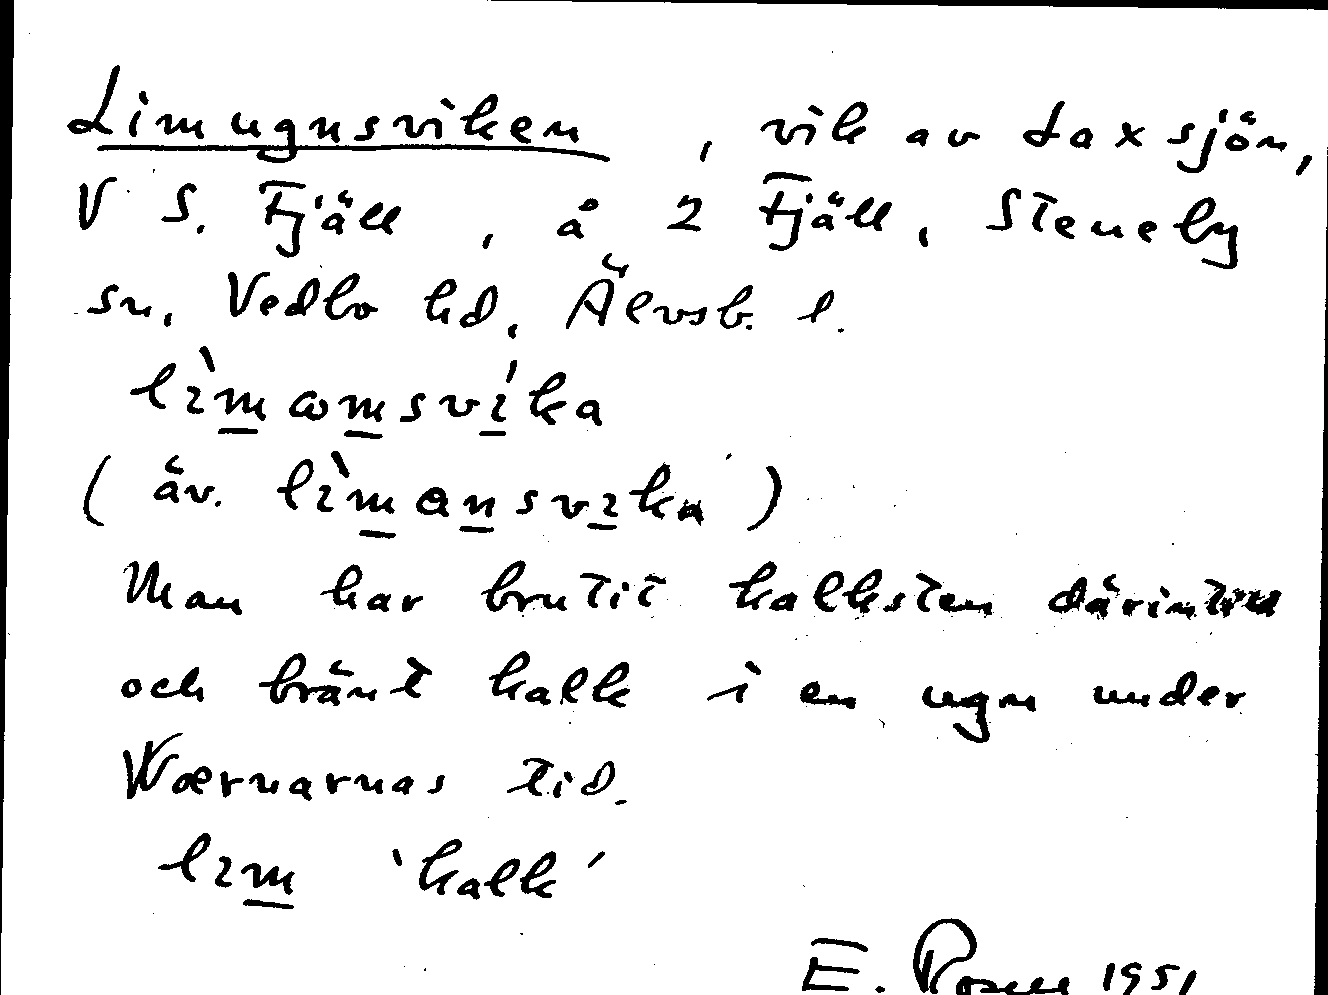 Limugnsviken, vik av Laxsjön,
V S. Fjäll, å 2 Fjäll, Steneby
sn, Vedbo hd, Älvsb. l.
lìmωmsvíka
(äv. lìmɑnsvika)
Man har brutit kalksten därintill
och bränt kalk i en ugn under
Wærnarnas tid.
lim 'kalk'
E. Rosell 1951